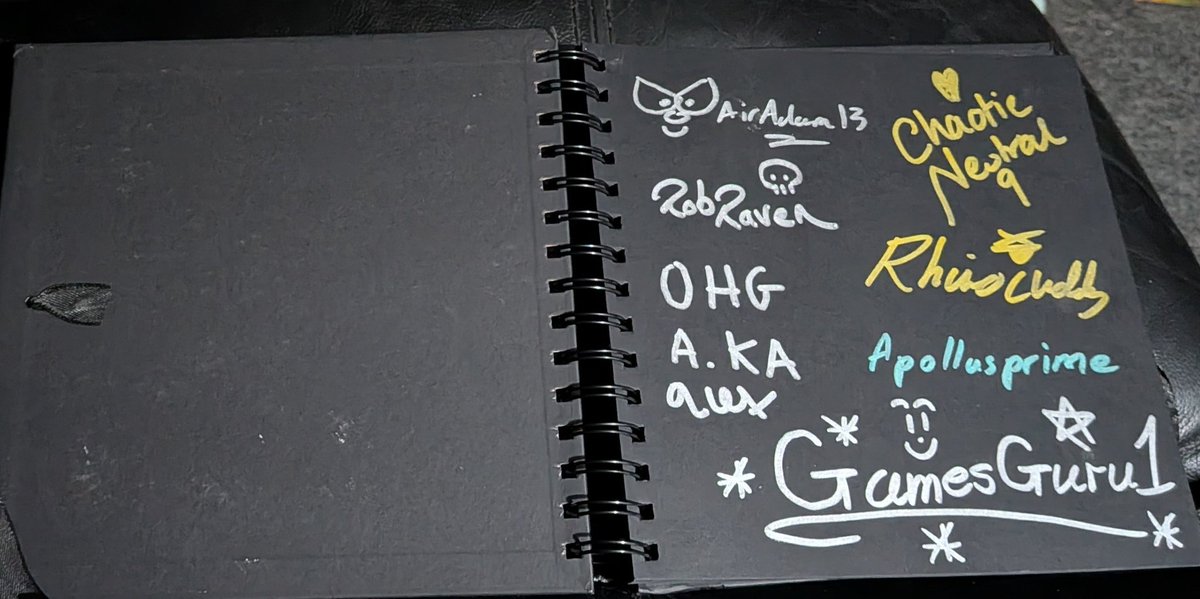 AirAdam13
RobRaven
OHG
A.KA
Chaotic
Neutral
9
Rhino
Apollusprime
GamesGuru1